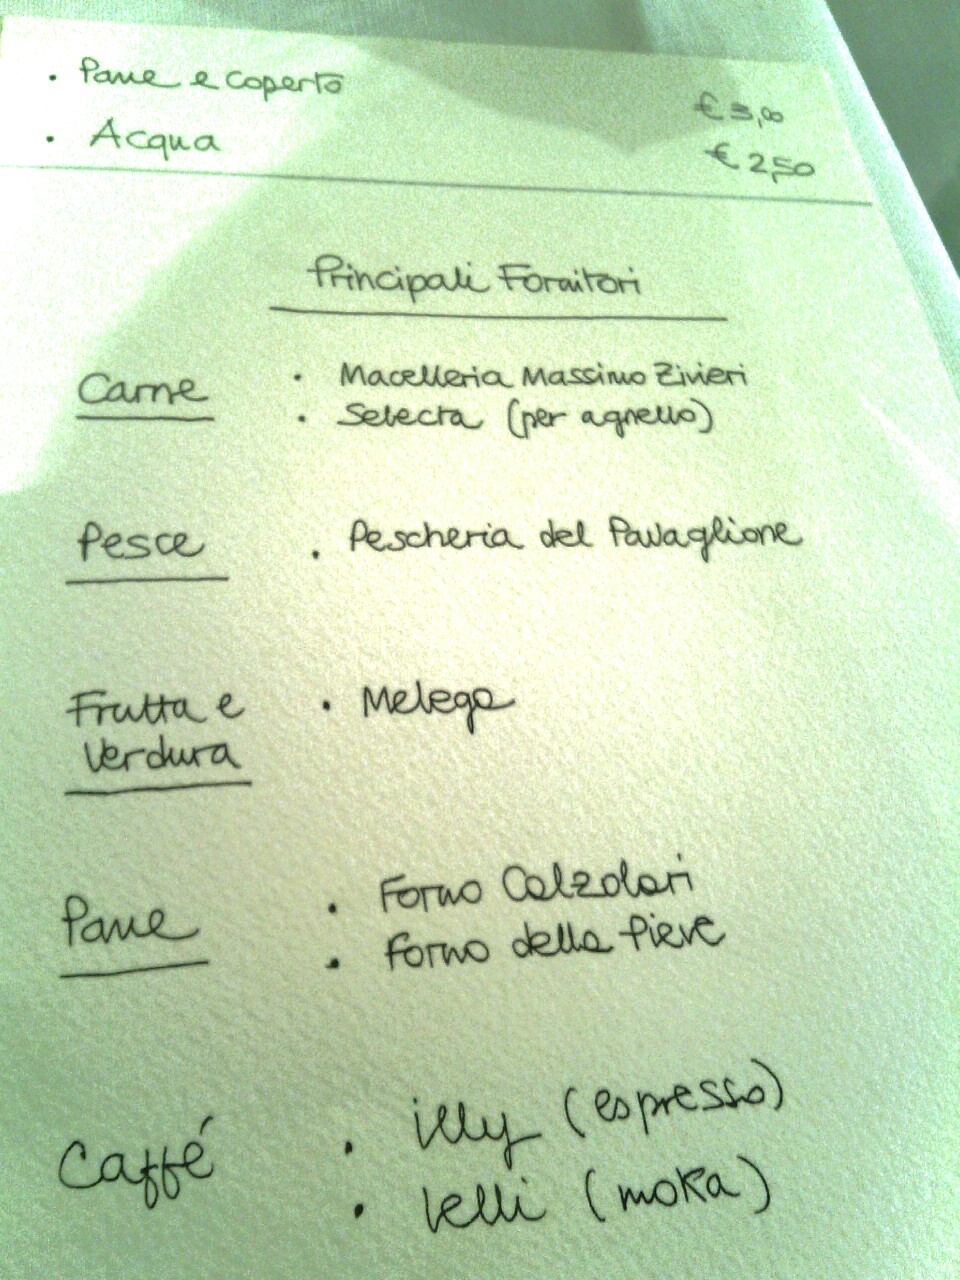 • Pane e coperto € 3,00
• Acqua € 2,50
Principali Fornitori
Carne • Macelleria Massimo Zivieri
• Selecta (per agnello)
Pesce • Pescheria del Pavaglione
Frutta e • Melega
Verdura
Pane • Forno Calzolari
• Forno della Pieve
Caffé • illy (espresso)
• lelli (moka)